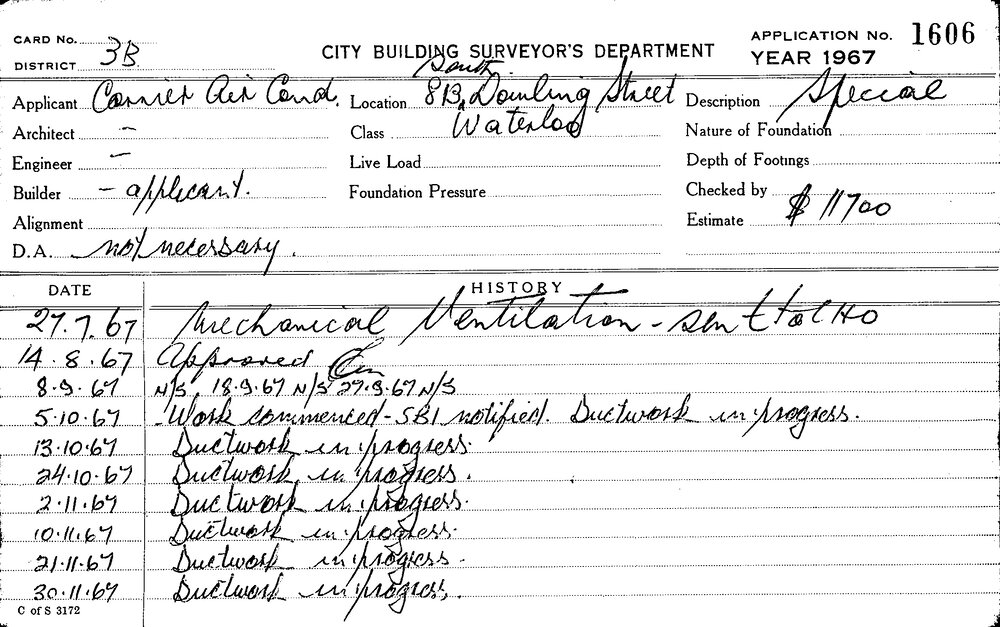 CARD No. 3B
DISTRICT
CITY BUILDING SURVEYOR'S DEPARTMENT
APPLICATION No. 1606
YEAR 1967
Applicant Carrier Air Cond.
Location 813 South Dowling Street
Waterloo
Description Special
Architect –
Class
Nature of Foundation
Engineer –
Live Load
Depth of Footings
Builder – applicant.
Foundation Pressure
Checked by
Alignment
Estimate $ 11700
D.A. not necessary.
DATE HISTORY
27.7.67 Mechanical Ventilation - sent to CHO
14.8.67 Approved
8.9.67 N/S 18.9.67 N/S 27.9.67 N/S
5.10.67 -Work commenced - SBI notified. Ductwork in progress.
13.10.67 Ductwork in progress.
24.10.67 Ductwork in progress.
2.11.67 Ductwork in progress.
10.11.67 Ductwork in progress.
21.11.67 Ductwork in progress.
30.11.67 Ductwork in progress.
C of S 3172